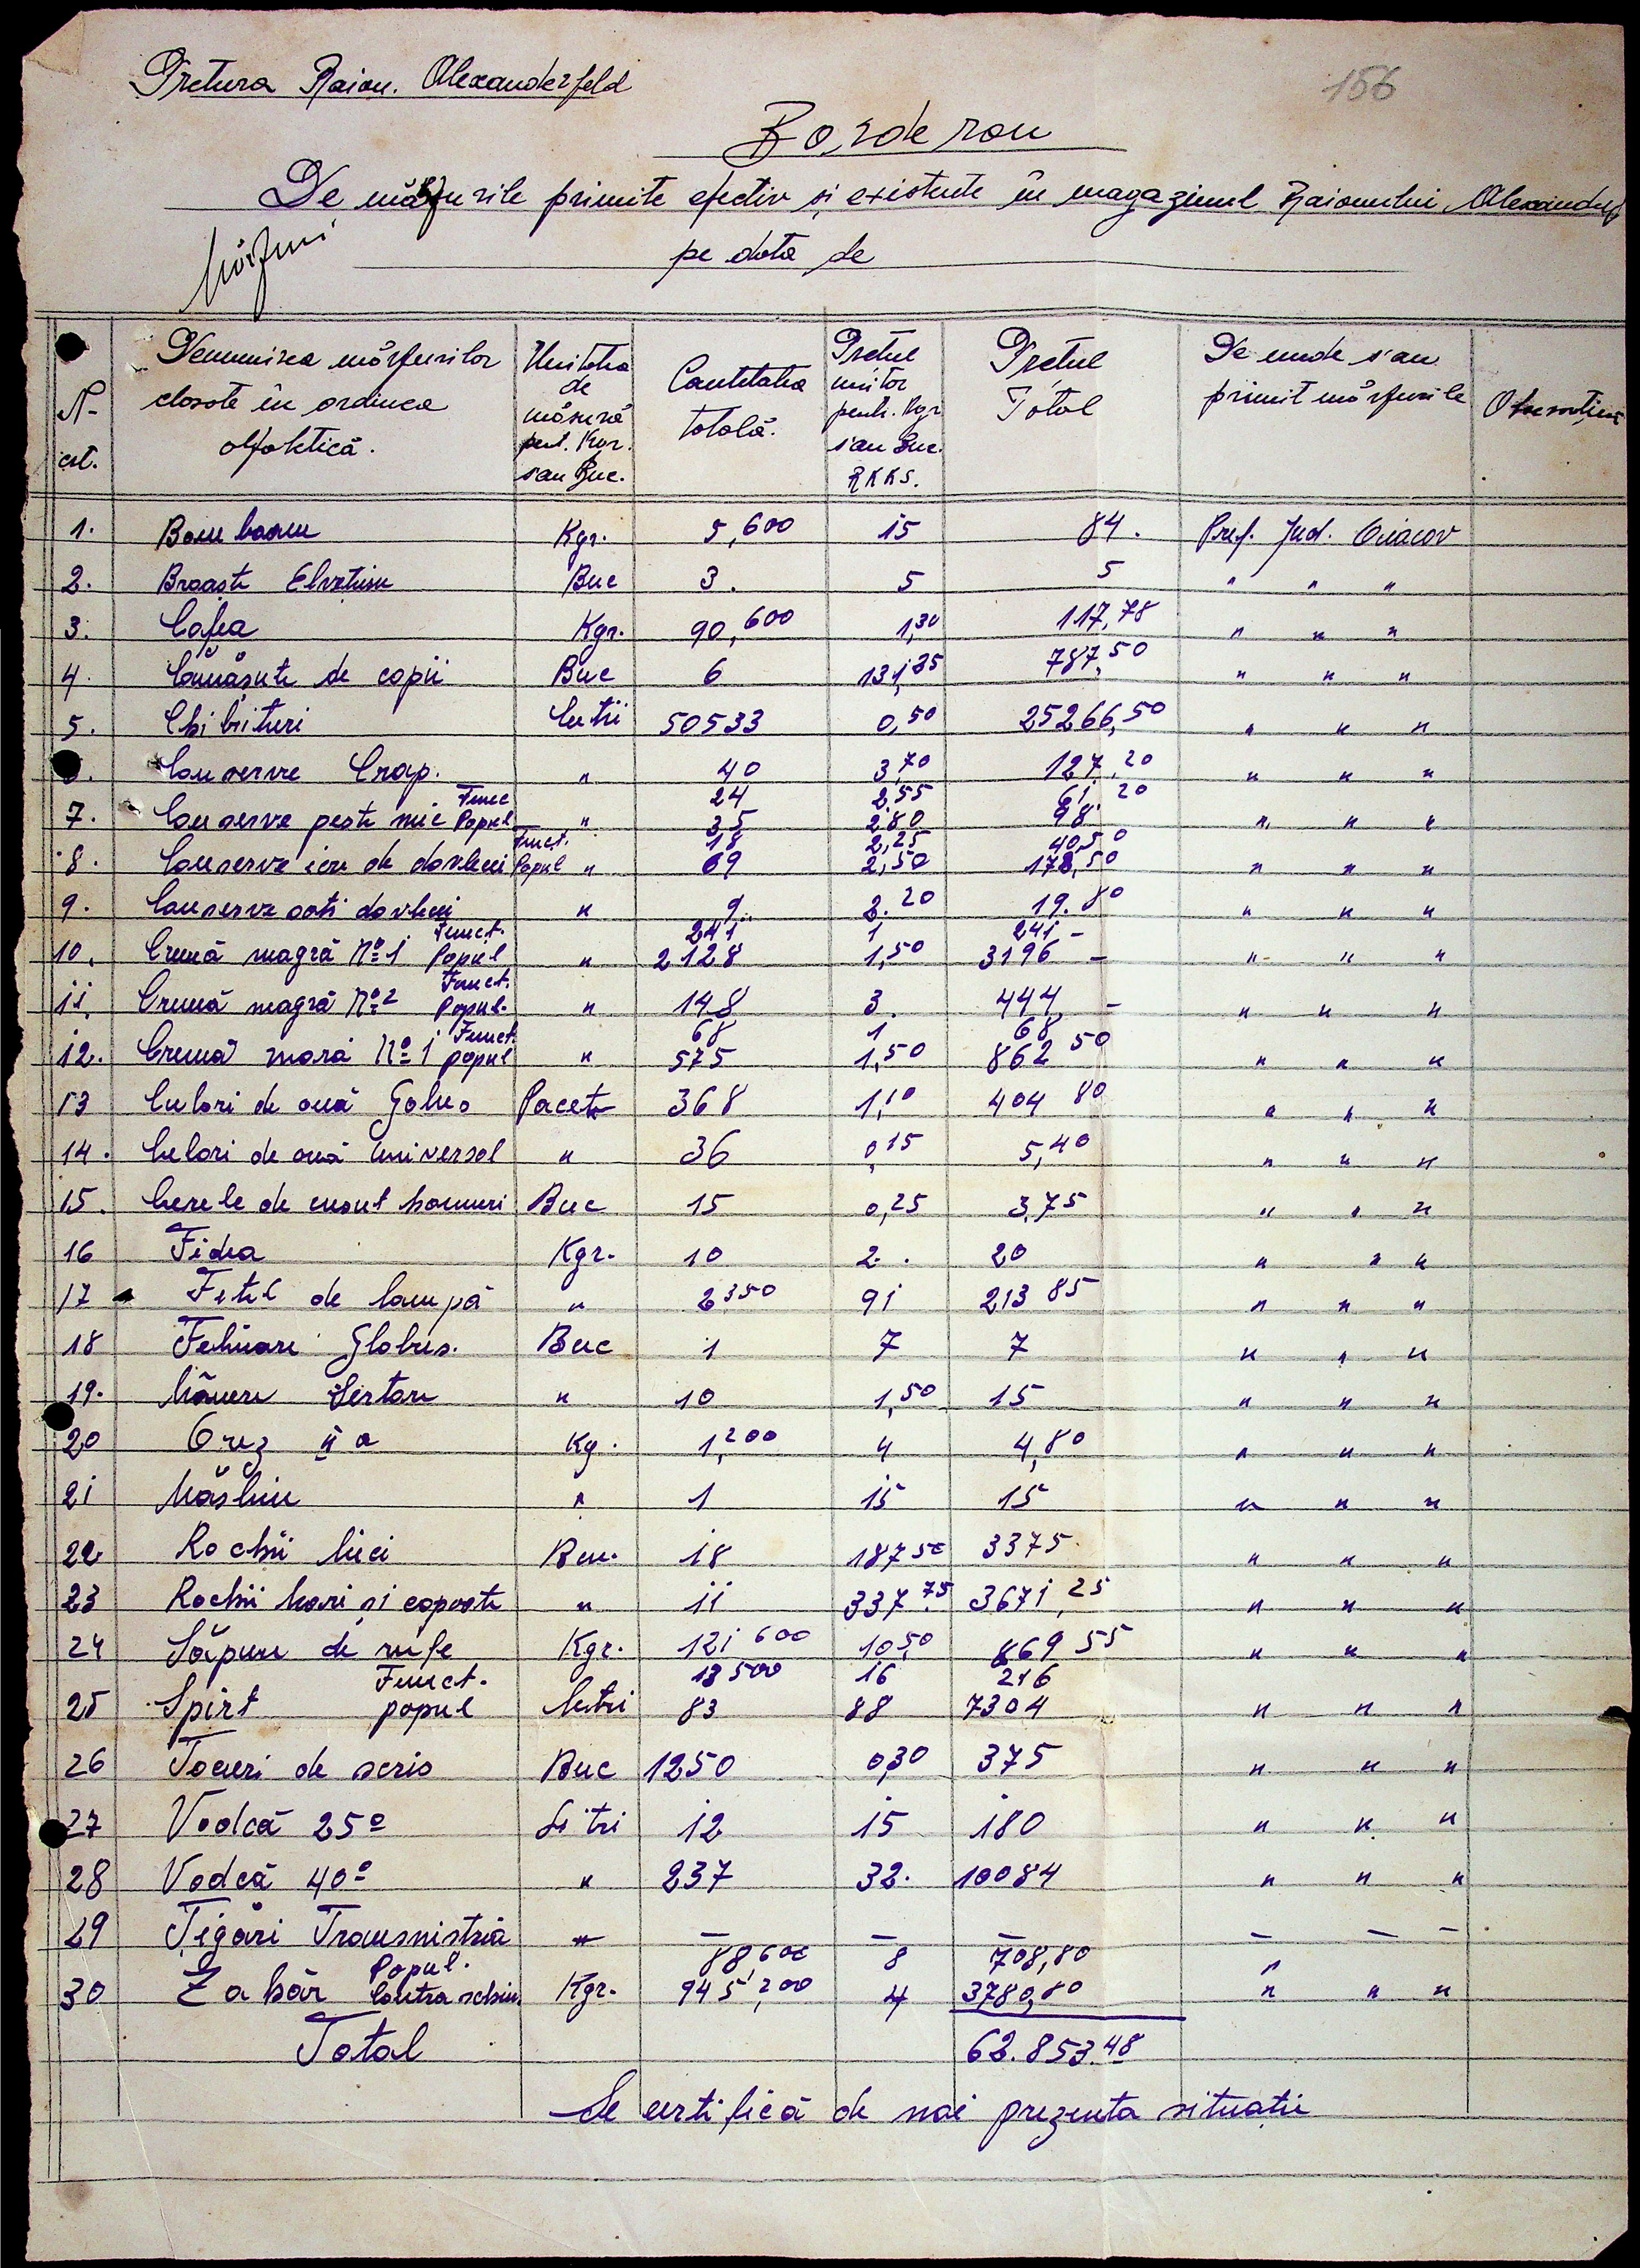 Pretura Raion. Alexanderfeld
156
Borderou
De mărfurile primite efectiv și existente în magazinul Raionului Alexanderf
Mărfuri
pe data de
N- crt. | Denumirea mărfurilor clasate în ordinea alfabetică. | Unitatea de măsură pent. Kgr. sau Buc. | Cantitatea totală. | Prețul unitar pentr. Kgr. sau Buc. RKKS. | Prețul Total | De unde s'au primit mărfurile | Observațiuni
1. Bomboane Kgr. 5,600 15 84. Pref. Jud. Oceacov
2. Broaște Elvețiene Buc 3. 5 5 " " "
3. Cafea Kgr. 90,600 1,30 117,78 " " "
4. Cămășute de copii Buc 6 131,25 787,50 " " "
5. Chibrituri Cutii 50533 0,50 25266,50 " " "
Conserve Crap. " 40 3,70 127,20 " " "
Func 24 2,55 61.20
7. Conserve pește mic Popul " 35 2,80 98 " " "
Funct. 18 2,25 40,50
8. Conserve icre de dovlecei Popul " 69 2,50 178,50 " " "
9. Conserve dovlecei " 9. 2.20 19.80 " " "
Funct. 241 1 241 -
10. Cremă neagră No 1 Popul " 2128 1,50 3196 - " " "
Funct.
11. Cremă neagră No 2 Popul. " 148 3. 444 - " " "
Funct. 68 1 68
12. Cremă maro No 1 popul " 575 1,50 862 50 " " "
13 Culori de ouă Galus Pacete 368 1,10 404 80 " " "
14. Culori de ouă Universal " 36 0,15 5,40 " " "
15. Curele de cusut hamuri Buc 15 0,25 3,75 " " "
16 Fidea Kgr. 10 2. 20 " " "
17 Fitil de lampă " 2350 91 213 85 " " "
18 Felinare Globus. Buc 1 7 7 " " "
19. Mânere Sertare " 10 1,50 15 " " "
20 Orez II a Kg. 1,200 4 4,80 " " "
21 Măsline " 1 15 15 " " "
22 Rochii Mici Buc. 18 187 50 3375 " " "
23 Rochii Mari și capoate " 11 337.75 3671,25 " " "
24 Săpun de rufe Kgr. 121 600 10,50 869 55 " " "
Funct. 13 500 16 216
25 Spirt popul Litri 83 88 7304 " " "
26 Tocuri de scris Buc 1250 0,30 375 " " "
27 Vodcă 25o Litri 12 15 180 " " "
28 Vodcă 40o " 237 32. 10084 " " "
29 Țigări Transnistria " — — — — — —
Popul. 88,600 8 708,80 "
30 Zahăr Contra schim. Kgr. 945,200 4 3780,80 " " "
Total 62.853.48
Se certifică de noi prezenta situație